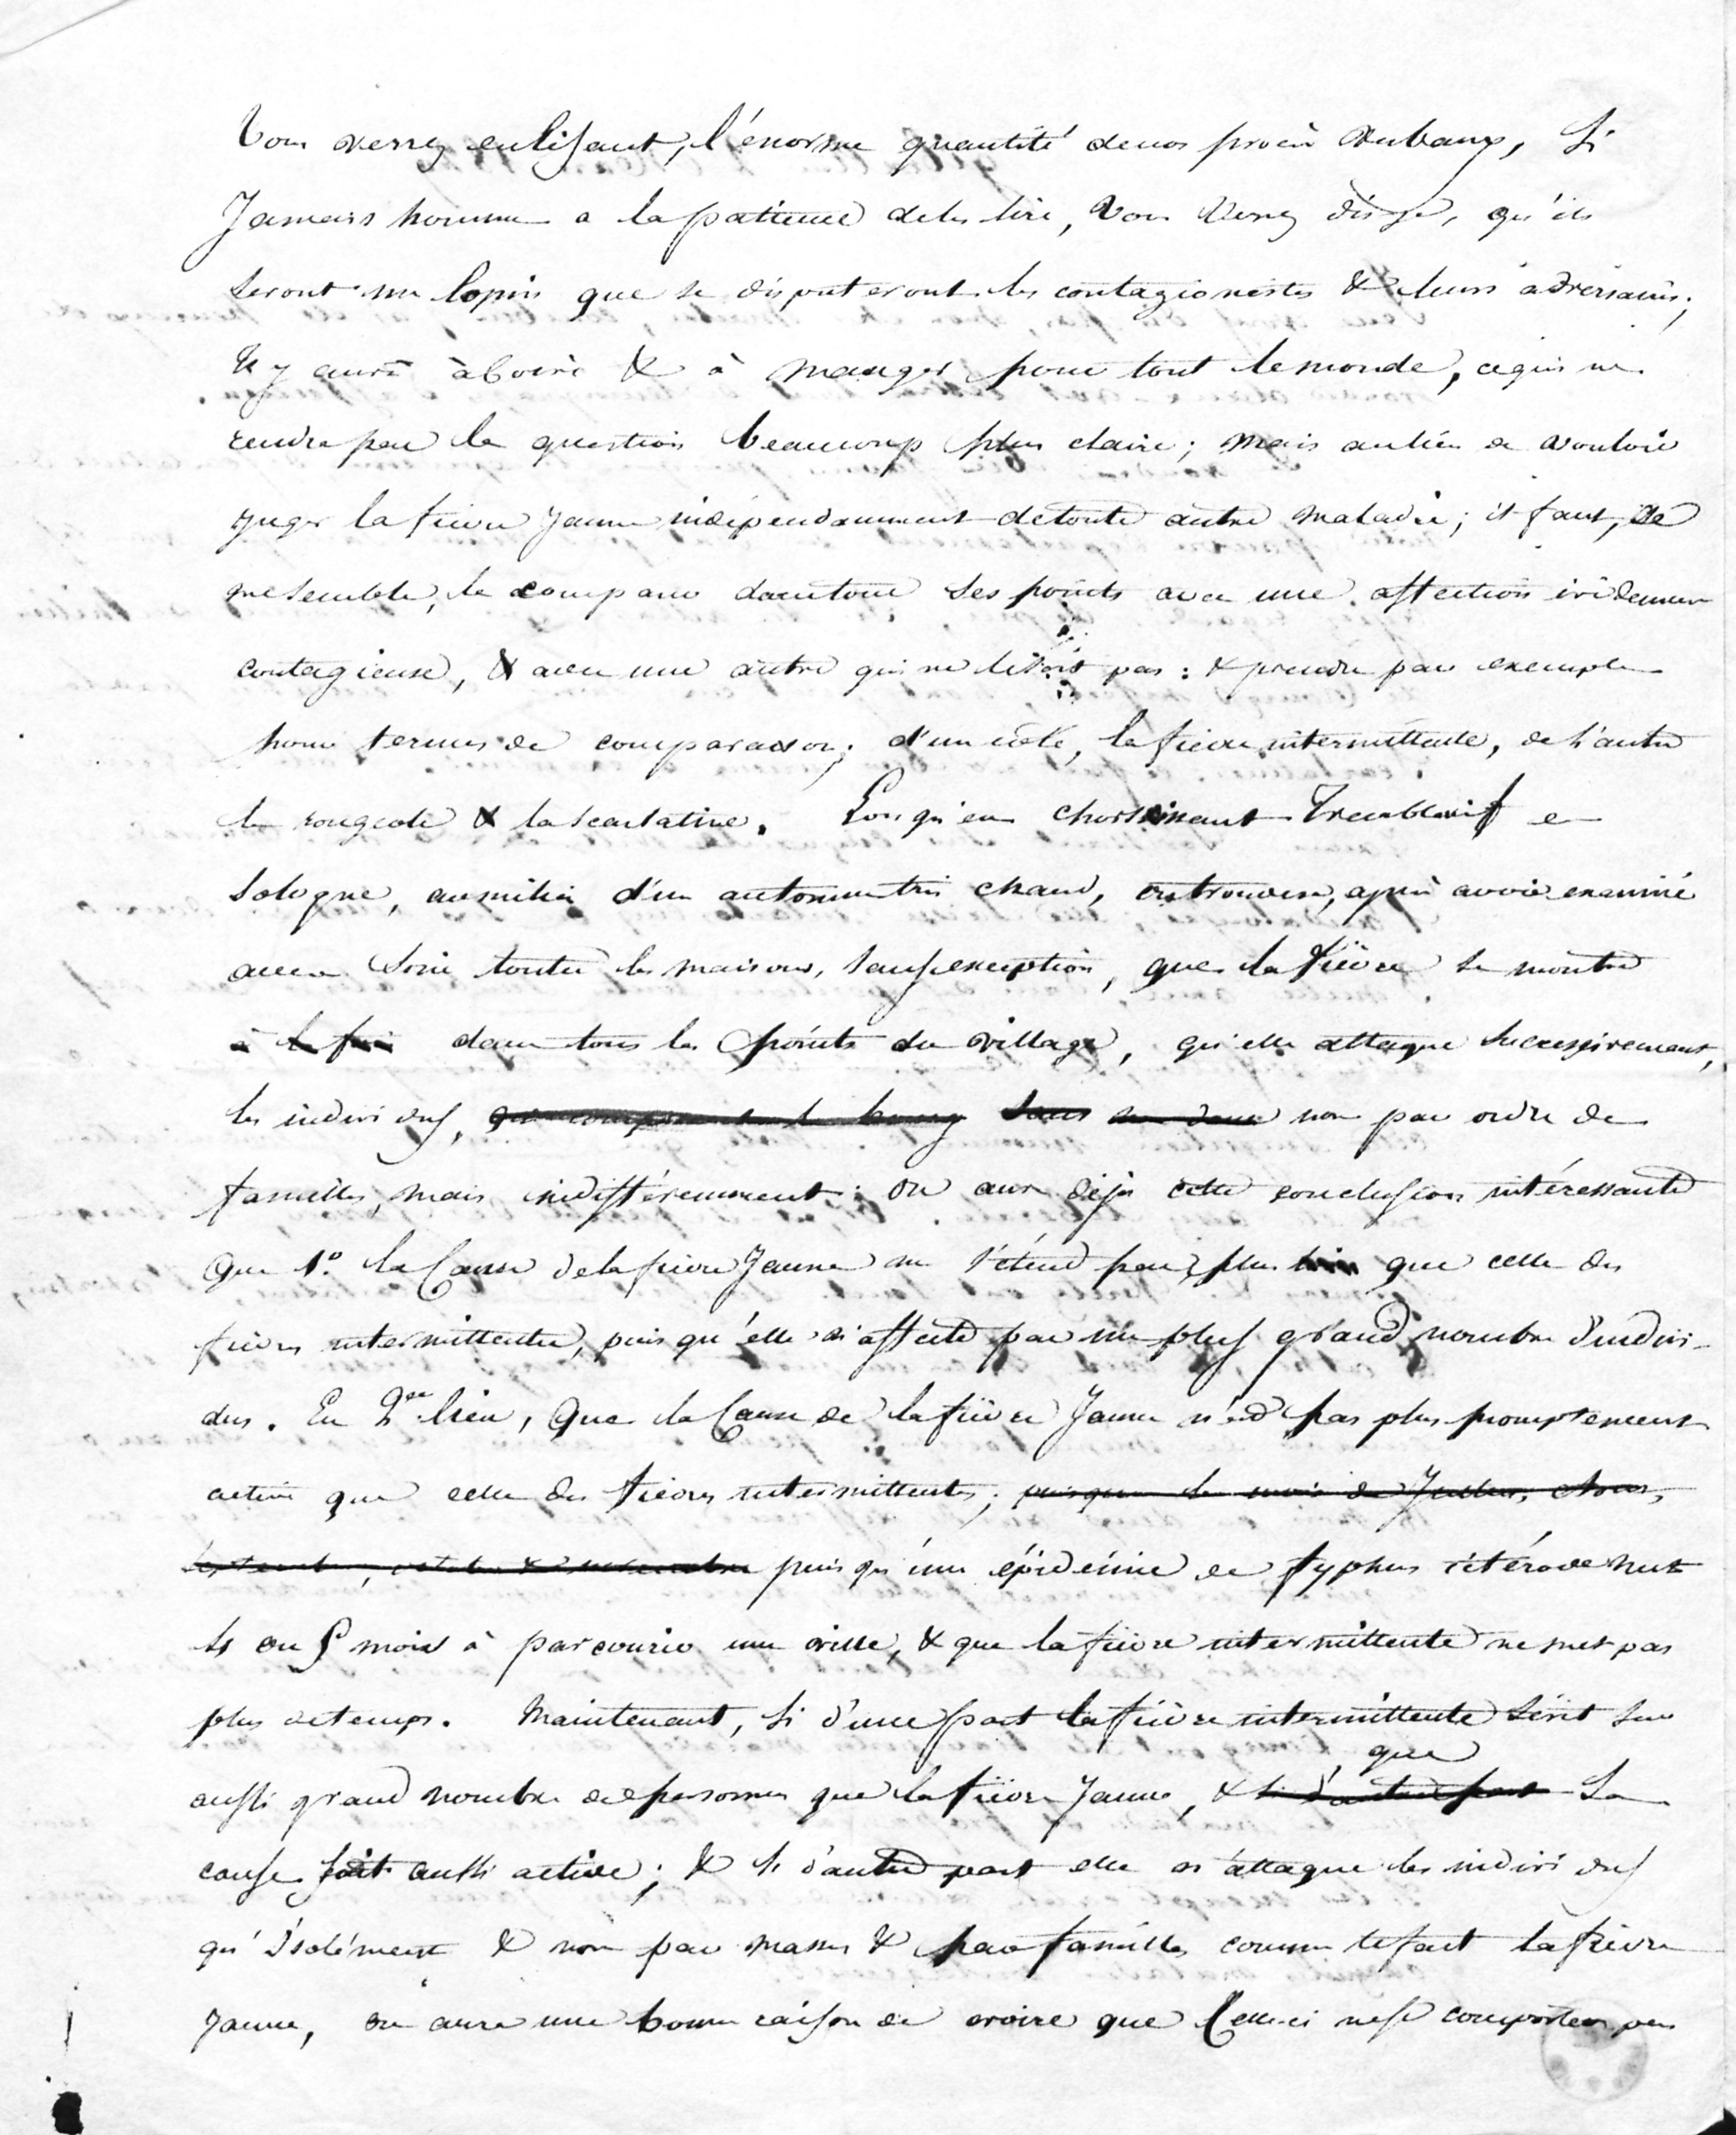 Vous verrez en lisant, l'énorme quantité de nos procès verbaux, si
Jamais homme a la patience de les lire, vous verrez dis-je, qu'ils
seront un lopin que se disputeront les contagionistes & leurs adversaires;
Il y aura à boire & à manger pour tout le monde, ce qui ne
rendra pas la question beaucoup plus claire; mais au lieu de vouloir
juger la fievre Jaune indépendamment de toute autre maladie; il faut, ce
me semble, la comparer dans tous ses points avec une affection évidemmen
contagieuse, & avec une autre qui ne le soit pas : & prendre par exemple
pour termes de comparaison; d'un coté, la fievre intermittente, de l'autre
la rougeole & la scarlatine. Lorsqu'en choisissant Tremblevif en
Sologne, au milieu d'un automne très chaud, on trouvera, après avoir examiné
avec soin toutes les maisons, sans exception, que la fièvre se montre
à la fois dans tous les points du village, qu'elle attaque successivement,
les individus, non par ordre de
familles, mais indifféremment : on aura déjà cette conclusion intéressante
Que 1° la Cause de la fievre Jaune ne s'étend pas plus loin que celle des
fievres intermittentes, puis qu'elle n'affecte pas un plus grand nombre d'indivi-
dus. En 2me lieu, Que la Cause de la fièvre Jaune n'est pas plus promptement
active que celle des fievres intermittentes; puisque le mois de
puis qu'une épidémie de typhus ictérode met
4 ou 5 mois à parcourir une ville, & que la fièvre intermittente ne met pas
plus de temps. Maintenant, si d'une part la fièvre intermittente sévit sur
aussi grand nombre de personnes que la fièvre Jaune, & si d'autre part que sa
cause soit aussi active; & si d'autre part elle n'attaque les individus
qu'isolément & non par masses & par familles comme le fait la fièvre
Jaune, on aura une bonne raison de croire que Celle-ci ne se comporte pas